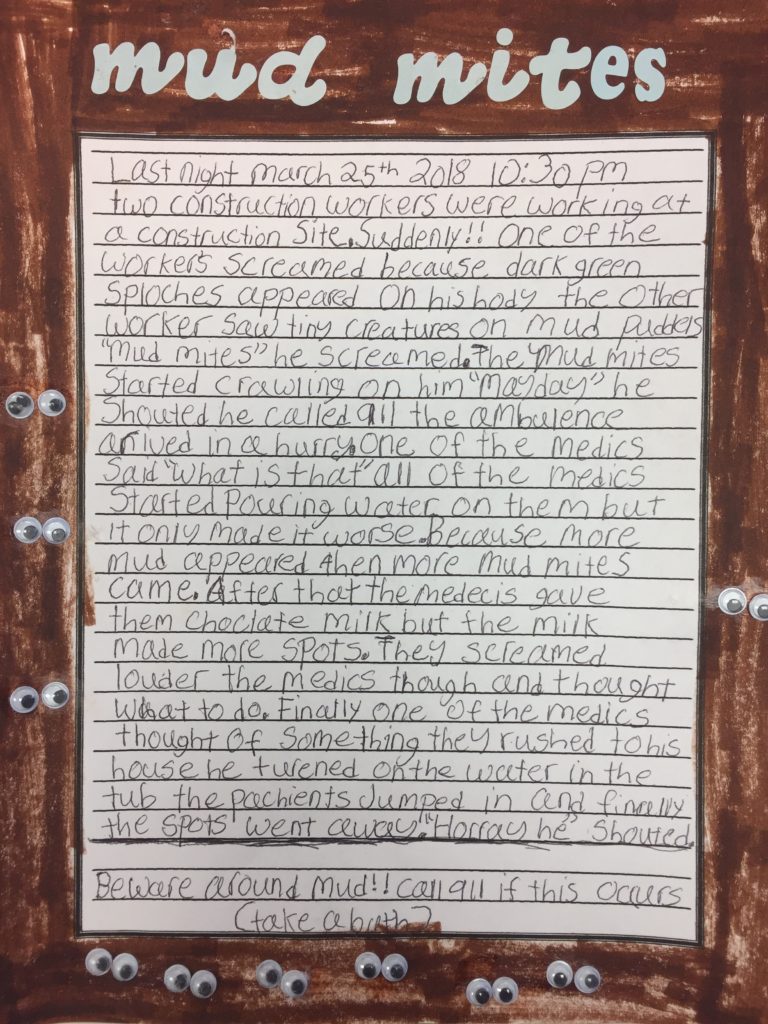 mud mites
Last night march 25th 2018 10:30 pm
two construction workers were working at
a construction Site. Suddenly!! One of the
workers screamed because dark green
Sploches appeared on his body the other
worker saw tiny creatures on mud puddels
"Mud mites" he screamed. The mud mites
Started crawling on him "Mayday" he
Shouted he called 911 the ambulence
arrived in a hurry. One of the medics
Said "What is that" all of the medics
Started pouring water on them but
it only made it worse. Because more
mud appeared then more mud mites
came. After that the medecis gave
them choclate milk but the milk
made more spots. They screamed
louder the medics though and thought
what to do. Finally one of the medics
thought of something they rushed to his
house he turened on the water in the
tub the pachients Jumped in and finally
the spots went away. "Horray he" Shouted.
Beware around mud!! Call 911 if this occurs
(take a bath)